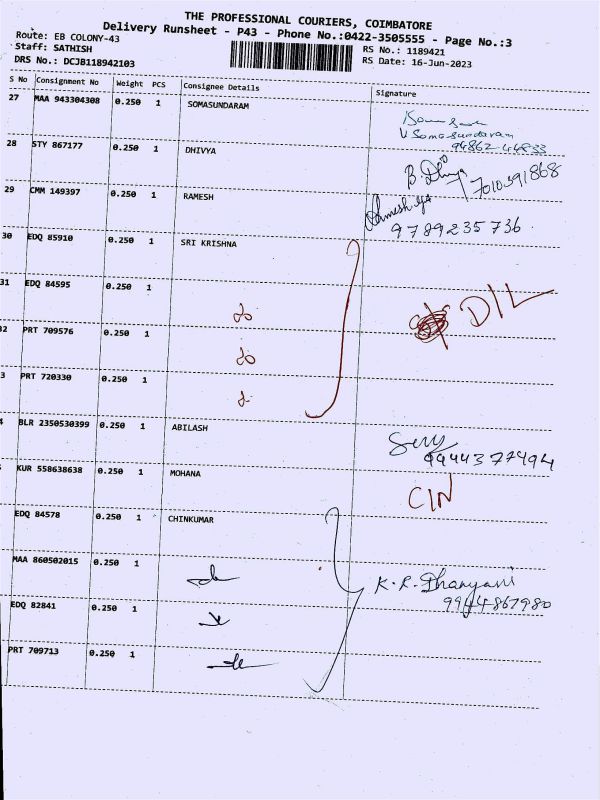 THE PROFESSIONAL COURIERS, COIMBATORE
Delivery Runsheet - P43 - Phone No.:0422-3505555 - Page No.:3
Route: EB COLONY-43
RS No.: 1189421
Staff: SATHISH
RS Date: 16-Jun-2023
DRS No.: DCJB118942103
S No Consignment No Weight PCS Consignee Details Signature
27 MAA 943304308 0.250 1 SOMASUNDARAM
V Somasundaram
94862-44833
28 STY 867177 0.250 1 DHIVYA
B. Dhivya 7010391868
29 CMM 149397 0.250 1 RAMESH
9789235736
30 EDQ 85910 0.250 1 SRI KRISHNA
31 EDQ 84595 0.250 1 do D/L
2 PRT 709576 0.250 1 do
3 PRT 720330 0.250 1
4 BLR 2350530399 0.250 1 ABILASH
9944377494
KUR 558638638 0.250 1 MOHANA C/N
EDQ 84578 0.250 1 CHINKUMAR
MAA 860502015 0.250 1 K.R.Dhanyani
EDQ 82841 0.250 1 9944867980
PRT 709713 0.250 1